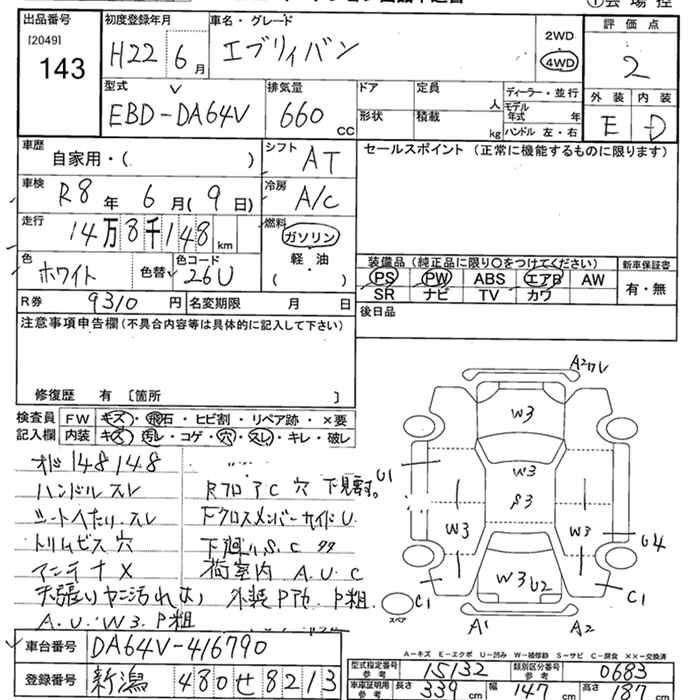 出品番号
[2049]
143
初度登録年月
H22 6月
車名・グレード
エブリィバン
2WD
4WD
評価点
2
外装 内装
E D
型式
EBD-DA64V
排気量
660 CC
ドア
形状
定員 人
積載 kg
ディーラー・並行
モデル年式 年
ハンドル 左・右
車歴
自家用・( )
シフト
AT
セールスポイント (正常に機能するものに限ります)
車検
R8年 6月(9日)
冷房
A/C
走行
14万8千148km
燃料
ガソリン
軽・油
( )
色
ホワイト
色替
色コード
26U
装備品 (純正品に限り○をつけてください)
PS PW ABS エアB AW
SR ナビ TV カワ
新車保証書
有・無
R券 9310円
名変期限 月 日
後日品
注意事項申告欄(不具合内容等は具体的に記入して下さい)
修復歴 有 〔箇所 〕
検査員記入欄
FW キズ・飛石・ヒビ割・リペア跡・×要
内装 キズ・汚レ・コゲ・穴・スレ・キレ・破レ
オド 148148
ハンドル スレ
シートへたり、スレ
トリムビス 穴
アンテナ X
天張りヤニ汚れあり
A.U.W3.P粗
RフロアC 穴 下見要す。
FクロスメンバーサイドU.
下廻りS.C
荷室内 A.U.C
外装P粗
A2
W3
W3
S3
W3
W3
W3 U2
U1
U4
C1
C1
A1
A2
スペア
A-キズ E-エクボ U-凹み W-補修跡 S-サビ C-腐食 ××-交換済
車台番号
DA64V-416790
登録番号
新潟 480 せ 8213
型式指定番号 参考
15132
類別区分番号 参考
0683
車庫証明用 参考
長さ 339 cm
幅 147 cm
高さ 187 cm